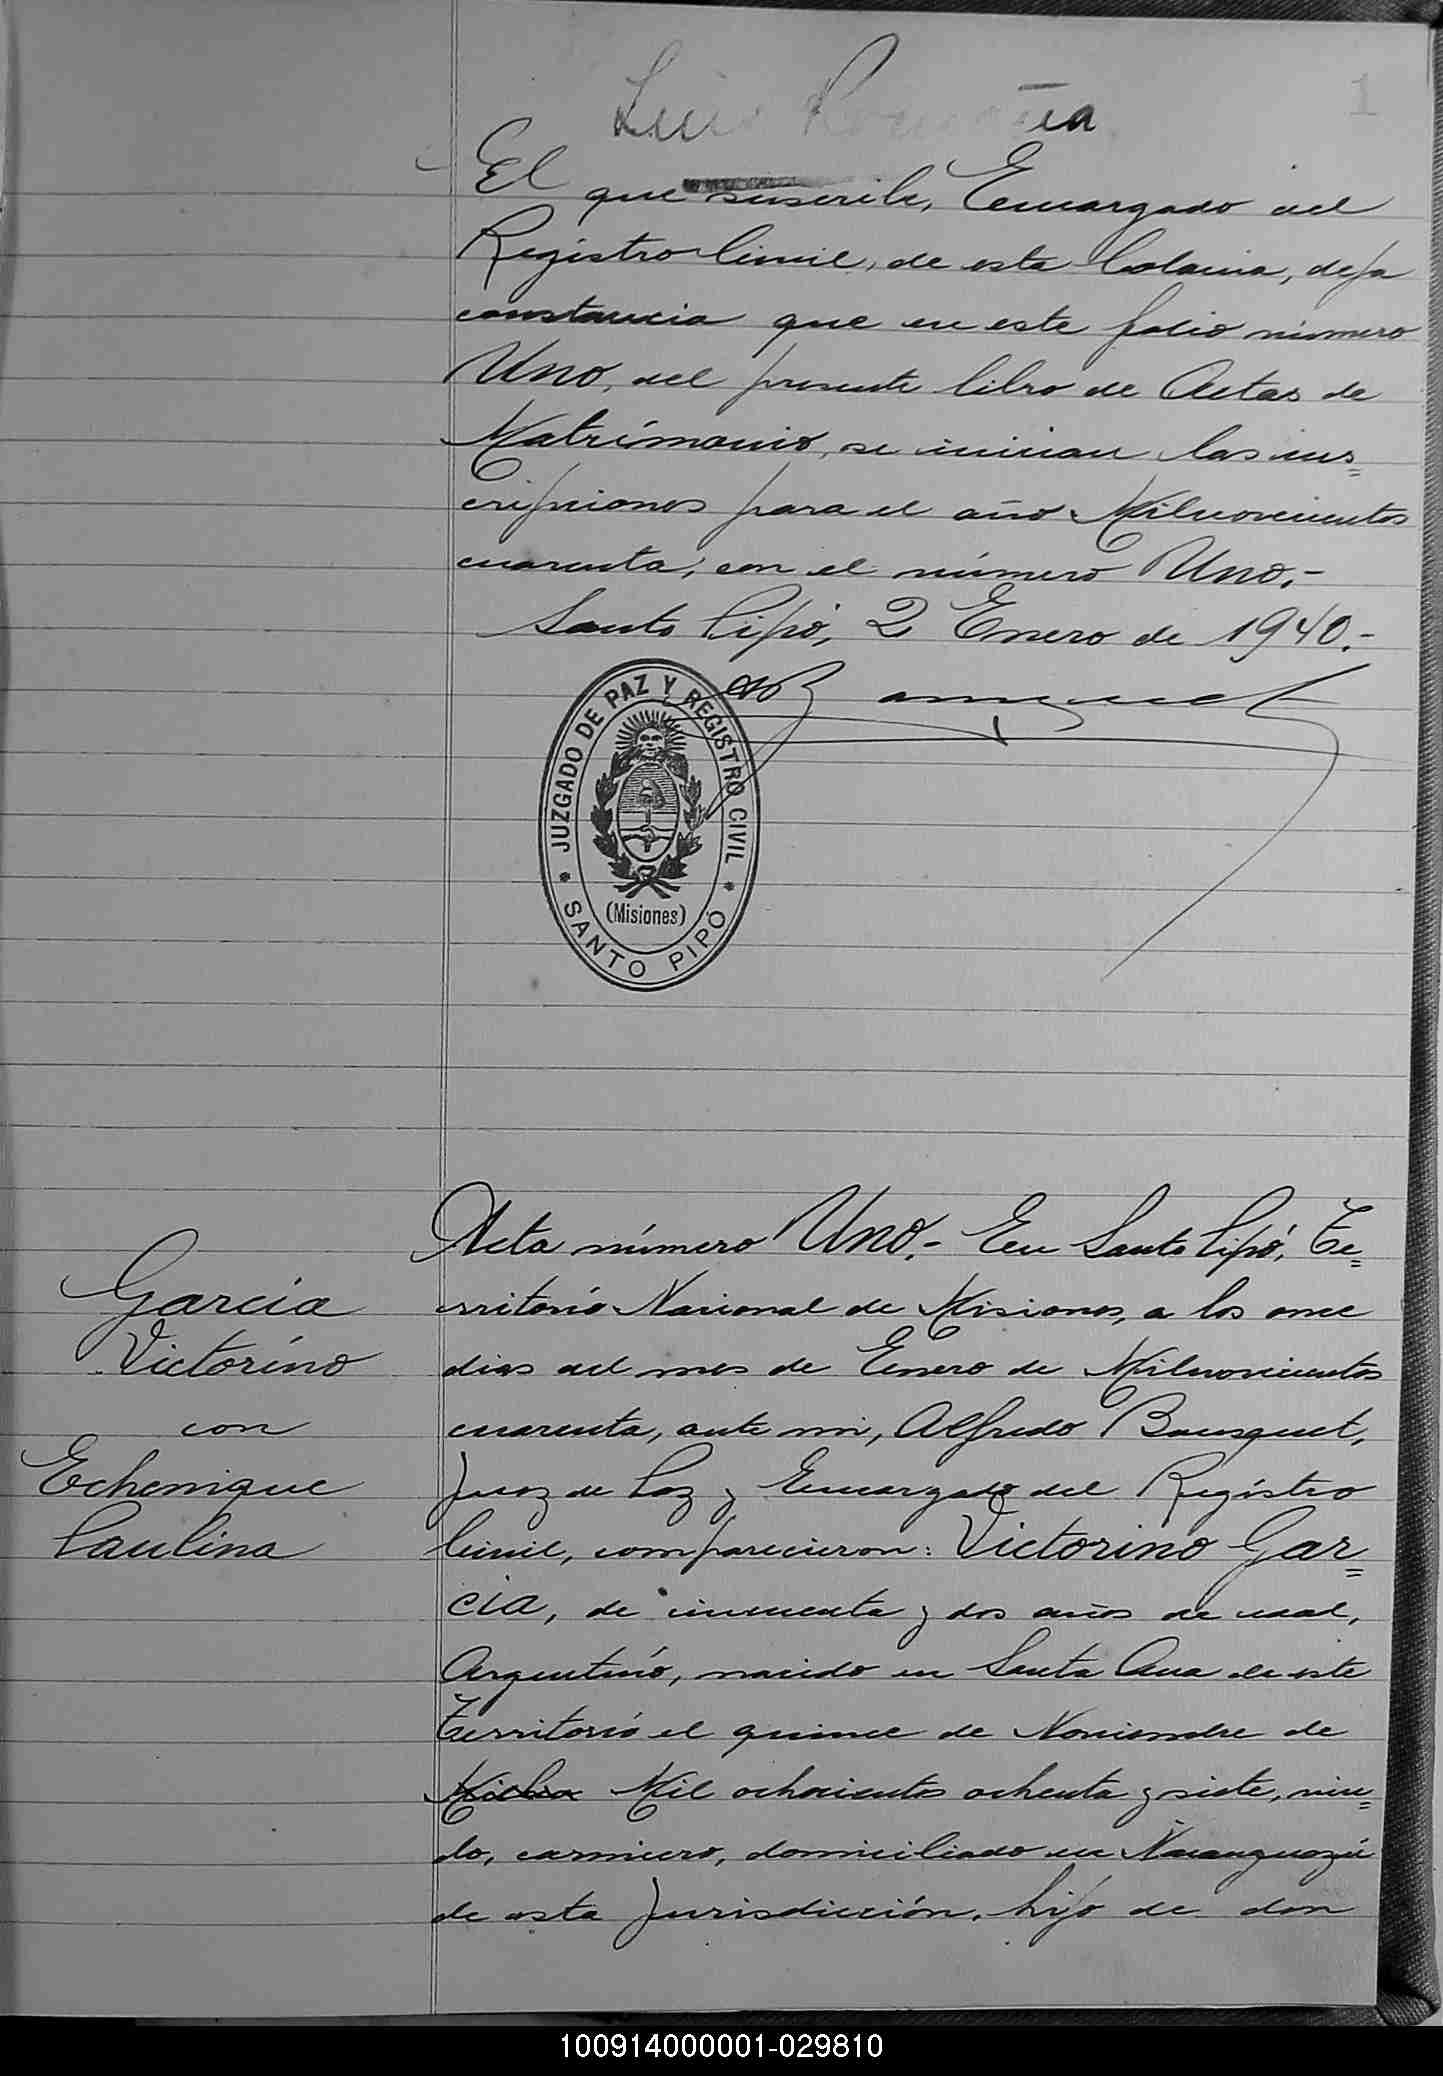 Luis
1
El que suscribe, Encargado del
Registro Civil, de esta Colonia, deja
constancia que en este folio número
Uno, del presente libro de Actas de
Matrimonio, se inician las ins=
cripciones para el año Milnovecientos
cuarenta, con el número Uno.-
Santo Pipó, 2 Enero de 1940.-
JUZGADO DE PAZ Y REGISTRO CIVIL
(Misiones)
* SANTO PIPÓ *
Acta número Uno.- En Santo Pipó, Te=
García
rritorio Nacional de Misiones, a los once
Victorino
dias del mes de Enero de Milnovecientos
con
cuarenta, ante mi, Alfredo Bousquet,
Echenique
Juez de Paz y Encargado del Registro
Paulina
Civil, comparecieron: Victorino Gar=
cia, de cincuenta y dos años de edad,
Argentino, nacido en Santa Ana de este
Territorio el quince de Noviembre de
Mil ochocientos ochenta y siete, viu=
do, carnicero, domiciliado en
de esta Jurisdicción, hijo de don
100914000001-029810